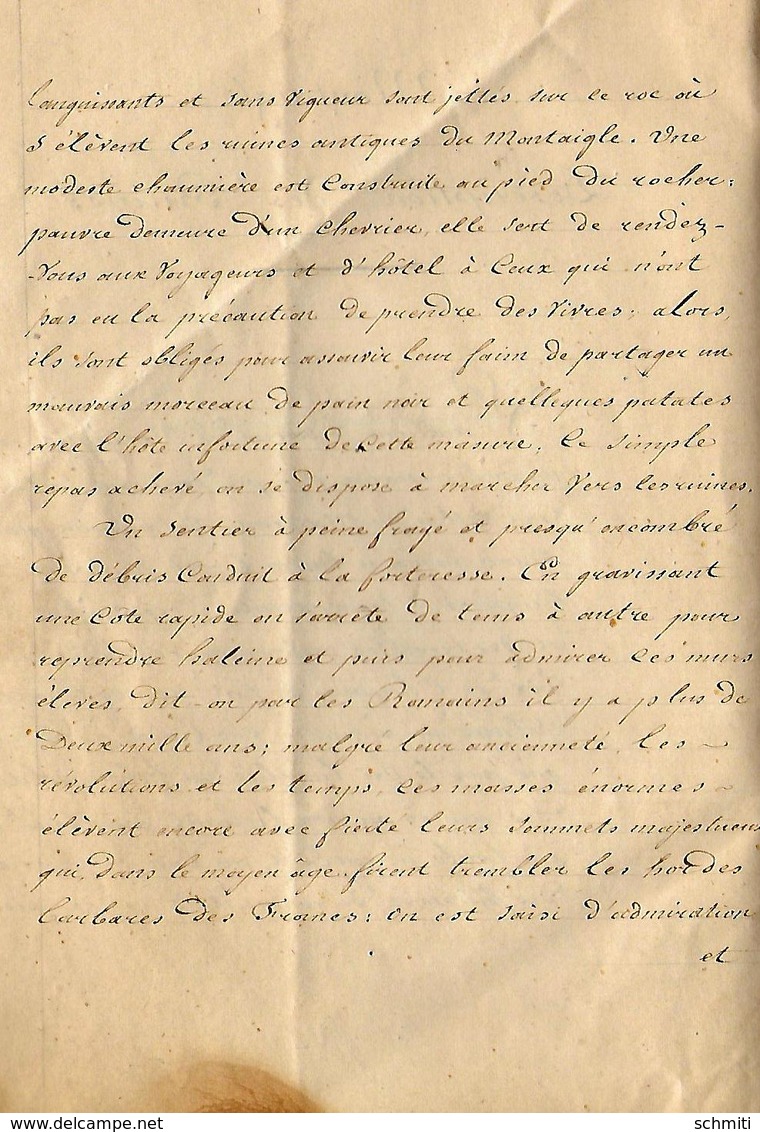 languissants et sans vigueur sont jettés sur ce roc où
s'élèvent les ruines antiques du Montaigle. Une
modeste chaumière est construite au pied du rocher:
pauvre demeure d'un chevrier, elle sert de rendez-
-vous aux voyageurs et d'hôtel à ceux qui n'ont
pas eu la précaution de prendre des vivres; alors,
ils sont obligés pour assouvir leur faim de partager un
mauvais morceau de pain noir et quelleques patates
avec l'hôte infortune de cette masure. Ce simple
repas achevé, on se dispose à marcher vers les ruines.
Un sentier à peine frayé et presqu'encombré
de débris conduit à la forteresse. En gravissant
une côte rapide on s'arrète de tems à autre pour
reprendre haleine et puis pour admirer ces murs
élevés, dit-on par les Romains il y a plus de
deux mille ans; malgré leur ancienneté, les
révolutions et les temps, ces masses énormes
élèvent encore avec fierté leurs sommets majestueux
qui, dans le moyen âge firent trembler les hordes
barbares des Francs: on est saisi d'admiration
et
schmiti